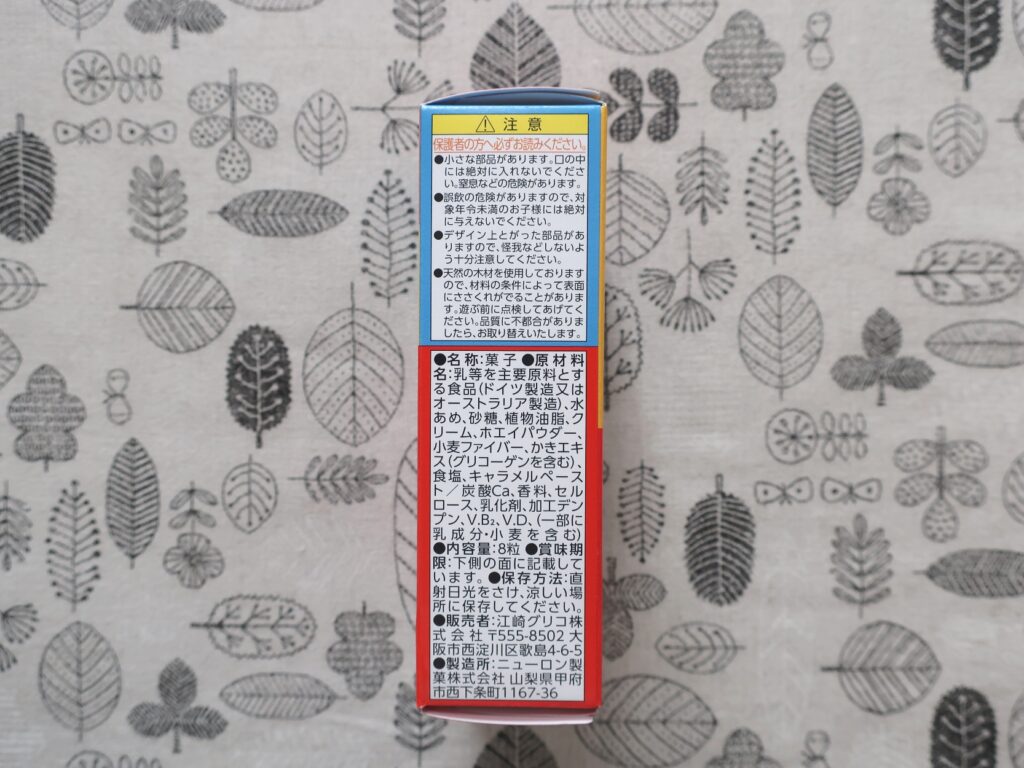 ⚠ 注意
保護者の方へ必ずお読みください。
●小さな部品があります。口の中
には絶対に入れないでくださ
い。窒息などの危険があります。
●誤飲の危険がありますので、対
象年令未満のお子様には絶対
に与えないでください。
●デザイン上とがった部品があ
りますので、怪我などしないよ
う十分注意してください。
●天然の木材を使用しております
ので、材料の条件によって表面
にささくれがでることがありま
す。遊ぶ前に点検してあげてく
ださい。品質に不都合がありま
したら、お取り替えいたします。
●名称:菓子 ●原材料
名:乳等を主要原料とす
る食品(ドイツ製造又は
オーストラリア製造)、水
あめ、砂糖、植物油脂、ク
リーム、ホエイパウダー、
小麦ファイバー、かきエキ
ス(グリコーゲンを含む)、
食塩、キャラメルペース
ト/炭酸Ca、香料、セル
ロース、乳化剤、加工デン
プン、V.B₂、V.D、(一部に
乳成分・小麦を含む)
●内容量:8粒 ●賞味期
限:下側の面に記載して
います。●保存方法:直
射日光をさけ、涼しい場
所に保存してください。
●販売者:江崎グリコ株
式会社 〒555-8502 大
阪市西淀川区歌島4-6-5
●製造所:ニューロン製
菓株式会社 山梨県甲府
市西下条町1167-36